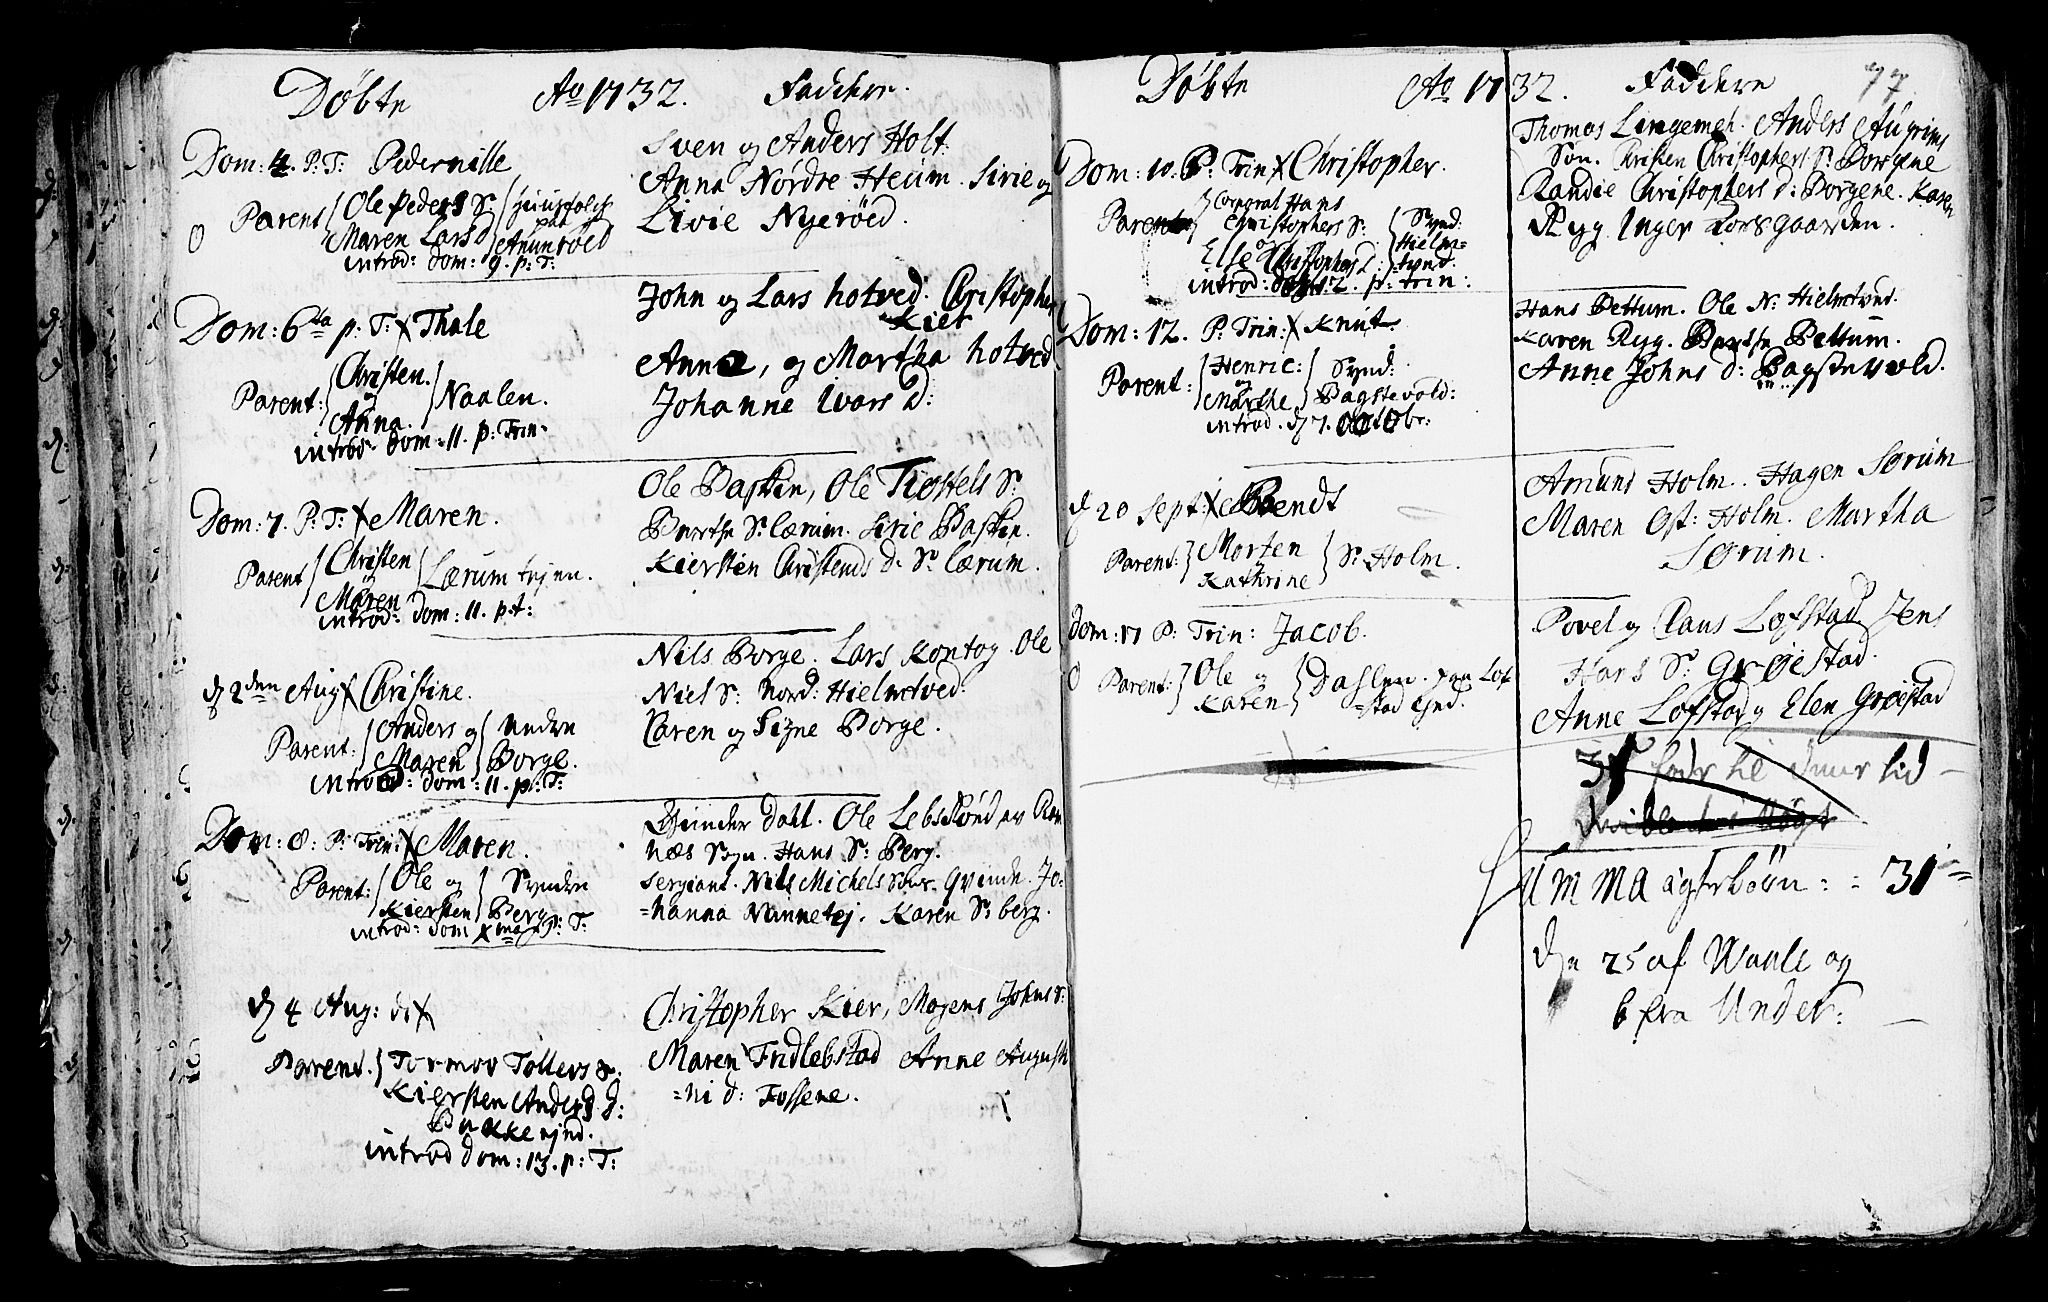 Döbte Ao 1732. Faddere.
Dom: 4. P: T: Pedernille
Parent Ole Peders S: 
Maren Lars d Amunröed
introd: dom: 9. p: T:
Sven og Anders Holt.
Anna Nordre Heium. Sirie og
Livie Nyeröed.
Dom: 6ta p: T: Thale
Parent: Christen.
og
Anna. Naalen.
introd: dom: 11. p: Trin:
John og Lars hotved. Christopher
Kier
Anne, og Martha hotved
Johanne Ivars D:
Dom: 7. P: T: Maren.
Parent Christen
og
Maren Lærum
introd: dom: 11. p: t:
Ole Basken, Ole Tiostels S:
Berthe S: lærum. Sirie Basken.
Kiersten Christens d. S: lærum.
d 2den Aug Christine.
Parent: Anders og
Maren Nedre
Borge.
introd: dom: 11. p: T:
Nils Borge. Lars Kontog. Ole
Niels S: Nord: Hielmtved:
Caren og Signe Borge.
Dom: 8: P: Trin: Maren.
Parent: Ole og
Kiersten Syndre
Berg
introd: dom Xma p: T:
Gunder Dahl. Ole Lebsland av Ram
næs Sogn. Hans S: Berg.
Sergiant. Nils Michels Gvinde. Jo:
=hanna Nannetej. Karen S: berg.
d 4 Aug: di
Parent. Tormor Tollers S:
Kiersten Anders d:
Bakke ejnd.
introd dom: 13. p: T:
Christopher Kier, Mogens Johns S:
Maren Fridlebstad Anne August
=ni d: Fossene.
Döbte Ao 1732. Faddere 77.
Dom: 10. P: Trin Christopher.
Parent Corporal Hans
Christophers S: 
og
Else Christophers d: Synd:
Hielm=
=tvend.
introd: dom: 12. p: trin:
Thomas Lingemeh. Anders Augrims
Son. Kristen Christophers S: Borgene
Randie Christophers d: Borgene. Karen
Ryg Inger Korsgaarden.
Dom: 12. P: Trin: Knut.
Parent: Henric:
og
Marthe Synd:
Bagstevold:
introd. d 7. octobr:
Hans Bettum. Ole N: Hielmtved.
Karen Ryg. Berthe Bettum.
Anne Johns d: Bagstevold.
d 20 Sept: Bendt
Parent: Morten
og
Kathrine S: Holm.
Amund Holm. Hagen Sorum
Maren Ost: Holm. Martha
Sorum.
Dom: 17 P: Trin: Jacob.
Parent: Ole og
Karen Dahlen. paa Lof
=stad ejnd.
Povel og Claus Lofstad Jens
Hans S: Gröestad.
Anne Lofstad og Elen Gröestad
Summa ægte börn: = 31=
den 25 af Waale og
6 fra Under: